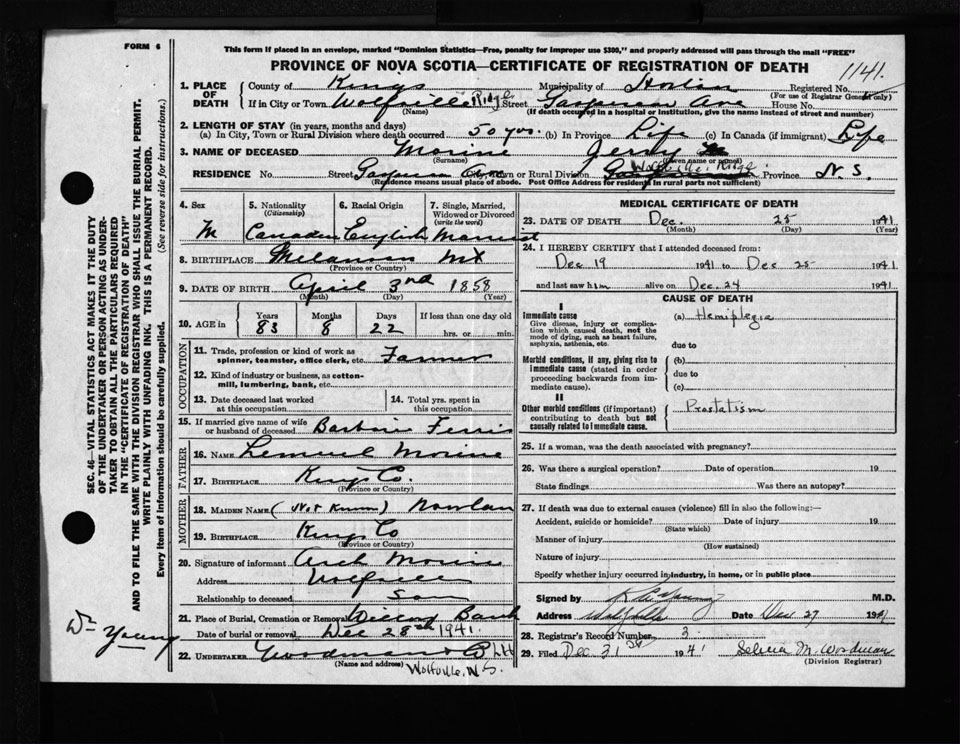 FORM 6
This form if placed in an envelope, marked "Dominion Statistics—Free, penalty for improper use $300," and properly addressed will pass through the mail "FREE"
PROVINCE OF NOVA SCOTIA—CERTIFICATE OF REGISTRATION OF DEATH
1141.
1. PLACE OF DEATH
County of Kings Municipality of Horton Registered No.
(For use of Registrar General only)
If in City or Town Wolfville Ridge Street Gaspereau Ave House No.
(Name) (If death occurred in a hospital or institution, give name instead of street and number)
2. LENGTH OF STAY (in years, months and days)
(a) In City, Town or Rural Division where death occurred 50 yrs. (b) In Province Life (c) In Canada (if immigrant) Life
3. NAME OF DECEASED Morine Jerry
(Surname) (Given name or names)
Wolfville Ridge
RESIDENCE No. Street Gaspereau Ave Town or Rural Division Province N S.
(Residence means usual place of abode. Post Office Address for residents in rural parts not sufficient)
4. Sex M
5. Nationality (Citizenship) Canadian
6. Racial Origin English
7. Single, Married, Widowed or Divorced (write the word) Married
8. BIRTHPLACE Melanson
(Province or Country)
9. DATE OF BIRTH April 3rd 1858
(Month) (Day) (Year)
10. AGE in Years Months Days If less than one day old
83 8 22 hrs. or min.
OCCUPATION
11. Trade, profession or kind of work as spinner, teamster, office clerk, etc. Farmer
12. Kind of industry or business, as cotton-mill, lumbering, bank, etc.
13. Date deceased last worked at this occupation
14. Total yrs. spent in this occupation
15. If married give name of wife or husband of deceased Ferris
FATHER
16. NAME Lemuel Morine
17. BIRTHPLACE Kings Co.
(Province or Country)
MOTHER
18. MAIDEN NAME (Not Known) Nowlan
19. BIRTHPLACE Kings Co
(Province or Country)
20. Signature of informant Arch Morine
Address Wolfville
Relationship to deceased Son
21. Place of Burial, Cremation or Removal Bank
Date of burial or removal Dec 28th 1941.
22. UNDERTAKER Woodman
(Name and address) Wolfville, N S.
MEDICAL CERTIFICATE OF DEATH
23. DATE OF DEATH Dec. 25 1941
(Month) (Day) (Year)
24. I HEREBY CERTIFY that I attended deceased from:
Dec 19 1941 to Dec 25 1941
and last saw him alive on Dec. 24 1941
CAUSE OF DEATH
I
Immediate cause
Give disease, injury or complication which caused death, not the mode of dying, such as heart failure, asphyxia, asthenia, etc.
(a) Hemiplegia
due to
Morbid conditions, if any, giving rise to immediate cause (stated in order proceeding backwards from immediate cause).
(b)
due to
(c)
II
Other morbid conditions (if important) contributing to death but not causally related to immediate cause.
Prostatism
25. If a woman, was the death associated with pregnancy?
26. Was there a surgical operation? Date of operation 19
State findings Was there an autopsy?
27. If death was due to external causes (violence) fill in also the following:—
Accident, suicide or homicide? Date of injury 19
(State which)
Manner of injury
(How sustained)
Nature of injury
Specify whether injury occurred in industry, in home, or in public place
Signed by M.D.
Address Wolfville Date Dec 27 1941
28. Registrar's Record Number 3
29. Filed Dec 31st 1941 Selena M. Woodman
(Division Registrar)
SEC. 46—VITAL STATISTICS ACT MAKES IT THE DUTY
OF THE UNDERTAKER OR PERSON ACTING AS UNDER-
TAKER TO OBTAIN ALL THE PARTICULARS REQUIRED
IN THE "CERTIFICATE OF REGISTRATION OF DEATH"
AND TO FILE THE SAME WITH THE DIVISION REGISTRAR WHO SHALL ISSUE THE BURIAL PERMIT.
WRITE PLAINLY WITH UNFADING INK. THIS IS A PERMANENT RECORD.
Every item of information should be carefully supplied. (See reverse side for instructions.)
Dr Young